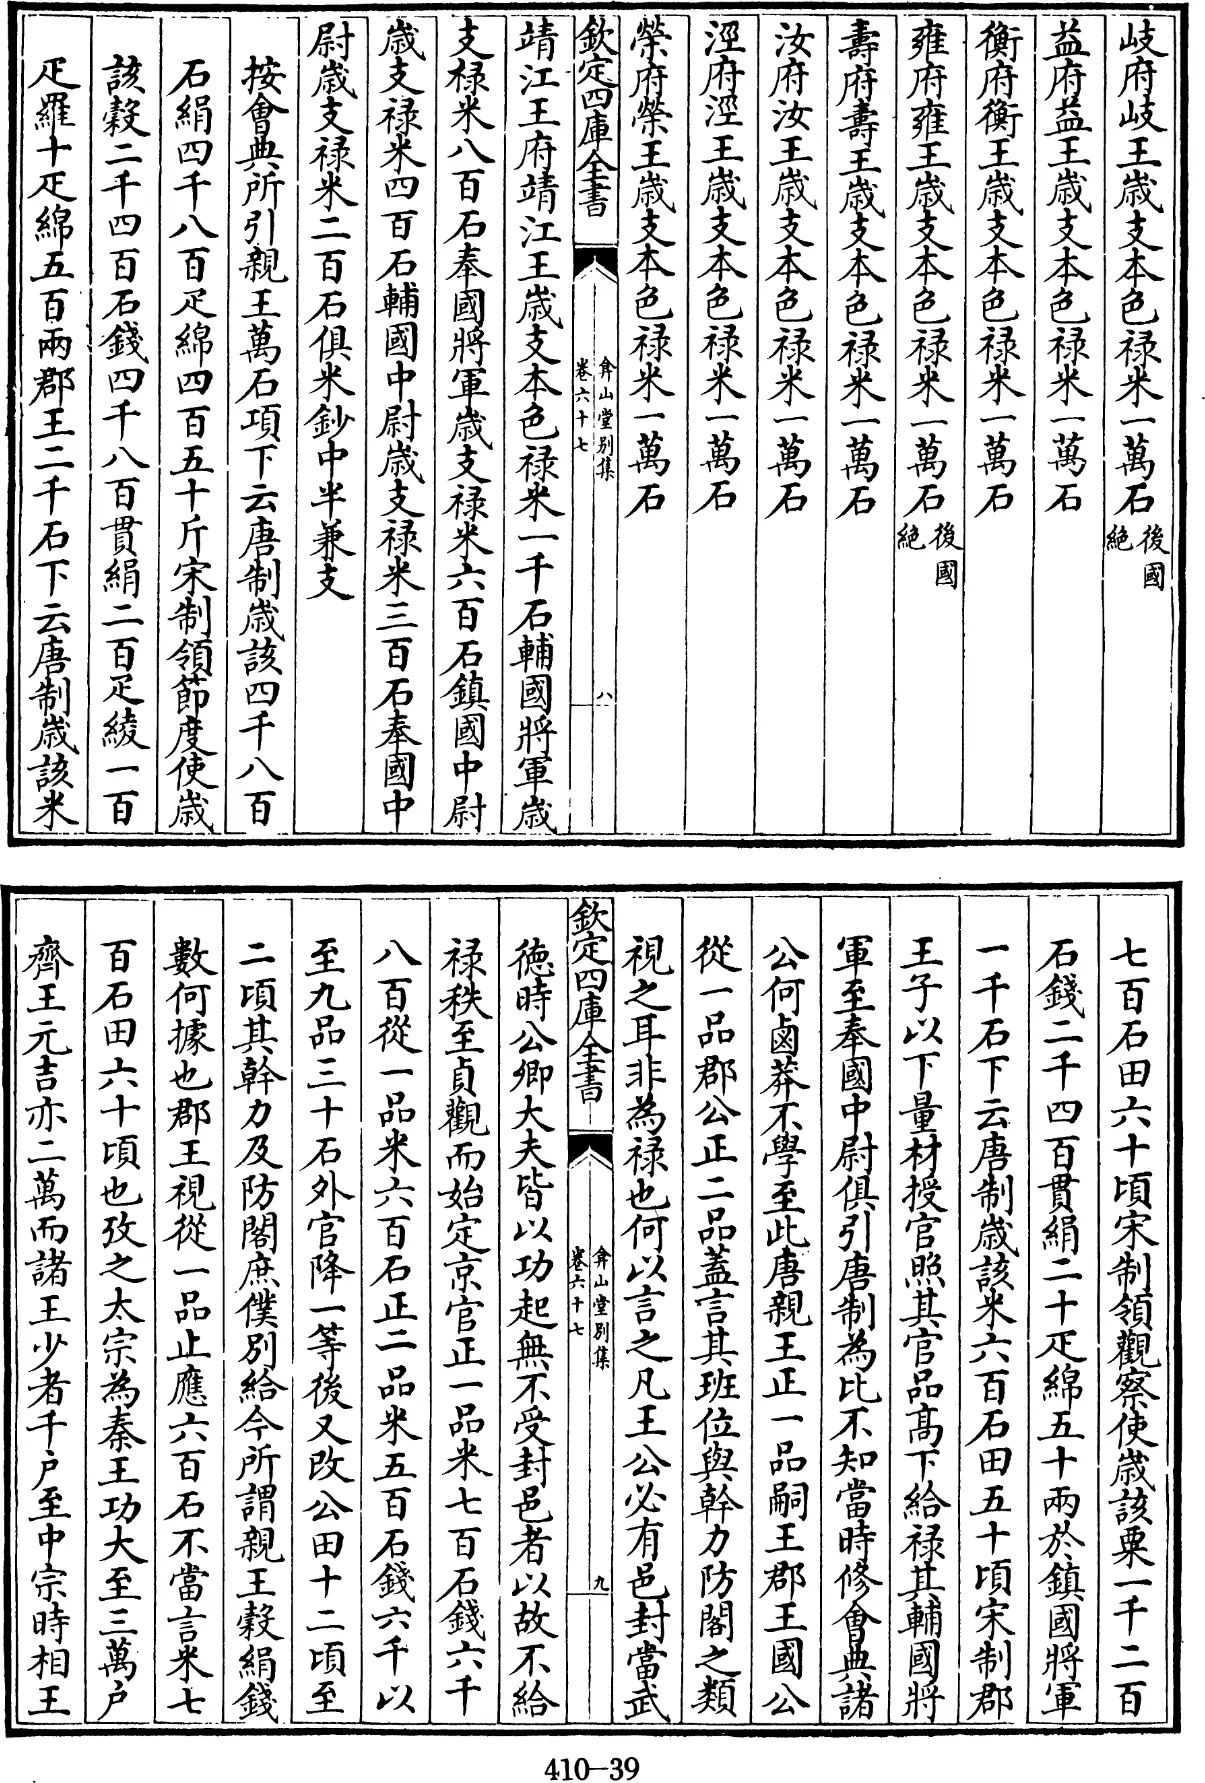 岐府岐王歳支本色禄米一萬石後國絶
益府益王歳支本色禄米一萬石
衡府衡王歳支本色禄米一萬石
雍府雍王歳支本色禄米一萬石後國絶
壽府壽王歳支本色禄米一萬石
汝府汝王歳支本色禄米一萬石
涇府涇王歳支本色禄米一萬石
榮府榮王歳支本色禄米一萬石
欽定四庫全書
弇山堂别集
卷六十七
八
靖江王府靖江王歳支本色禄米一千石輔國將軍歳
支禄米八百石奉國將軍歳支禄米六百石鎮國中尉
歳支禄米四百石輔國中尉歳支禄米三百石奉國中
尉歳支禄米二百石俱米鈔中半兼支
按會典所引親王萬石項下云唐制歳該四千八百
石絹四千八百疋綿四百五十斤宋制領節度使歳
該穀二千四百石錢四千八百貫絹二百疋綾一百
疋羅十疋綿五百兩郡王二千石下云唐制歳該米
七百石田六十頃宋制領觀察使歳該粟一千二百
石錢二千四百貫絹二十疋綿五十兩於鎮國將軍
一千石下云唐制歳該米六百石田五十頃宋制郡
王子以下量材授官照其官品髙下給禄其輔國將
軍至奉國中尉俱引唐制為比不知當時修會典諸
公何鹵莽不學至此唐親王正一品嗣王郡王國公
從一品郡公正二品蓋言其班位與幹力防閣之類
視之耳非為禄也何以言之凡王公必有邑封當武
欽定四庫全書
弇山堂别集
卷六十七
九
德時公卿大夫皆以功起無不受封邑者以故不給
禄秩至貞觀而始定京官正一品米七百石錢六千
八百從一品米六百石正二品米五百石錢六千以
至九品三十石外官降一等後又改公田十二頃至
二頃其幹力及防閣庶僕别給今所謂親王穀絹錢
數何據也郡王視從一品止應六百石不當言米七
百石田六十頃也攷之太宗為秦王功大至三萬户
齊王元吉亦二萬而諸王少者千户至中宗時相王
410-39